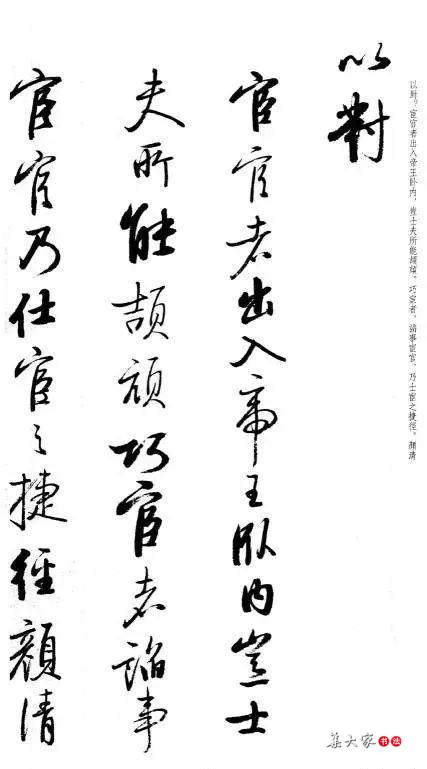 以對。宦官者出入帝王卧内，豈士夫所能頡頏，巧宦者，諂事宦官，乃士宦之捷徑。顔清
以對
宦官者出入帝王臥内豈士
夫所能頡頏巧宦者諂事
宦官乃仕宦之捷徑顔清
集大家 书法